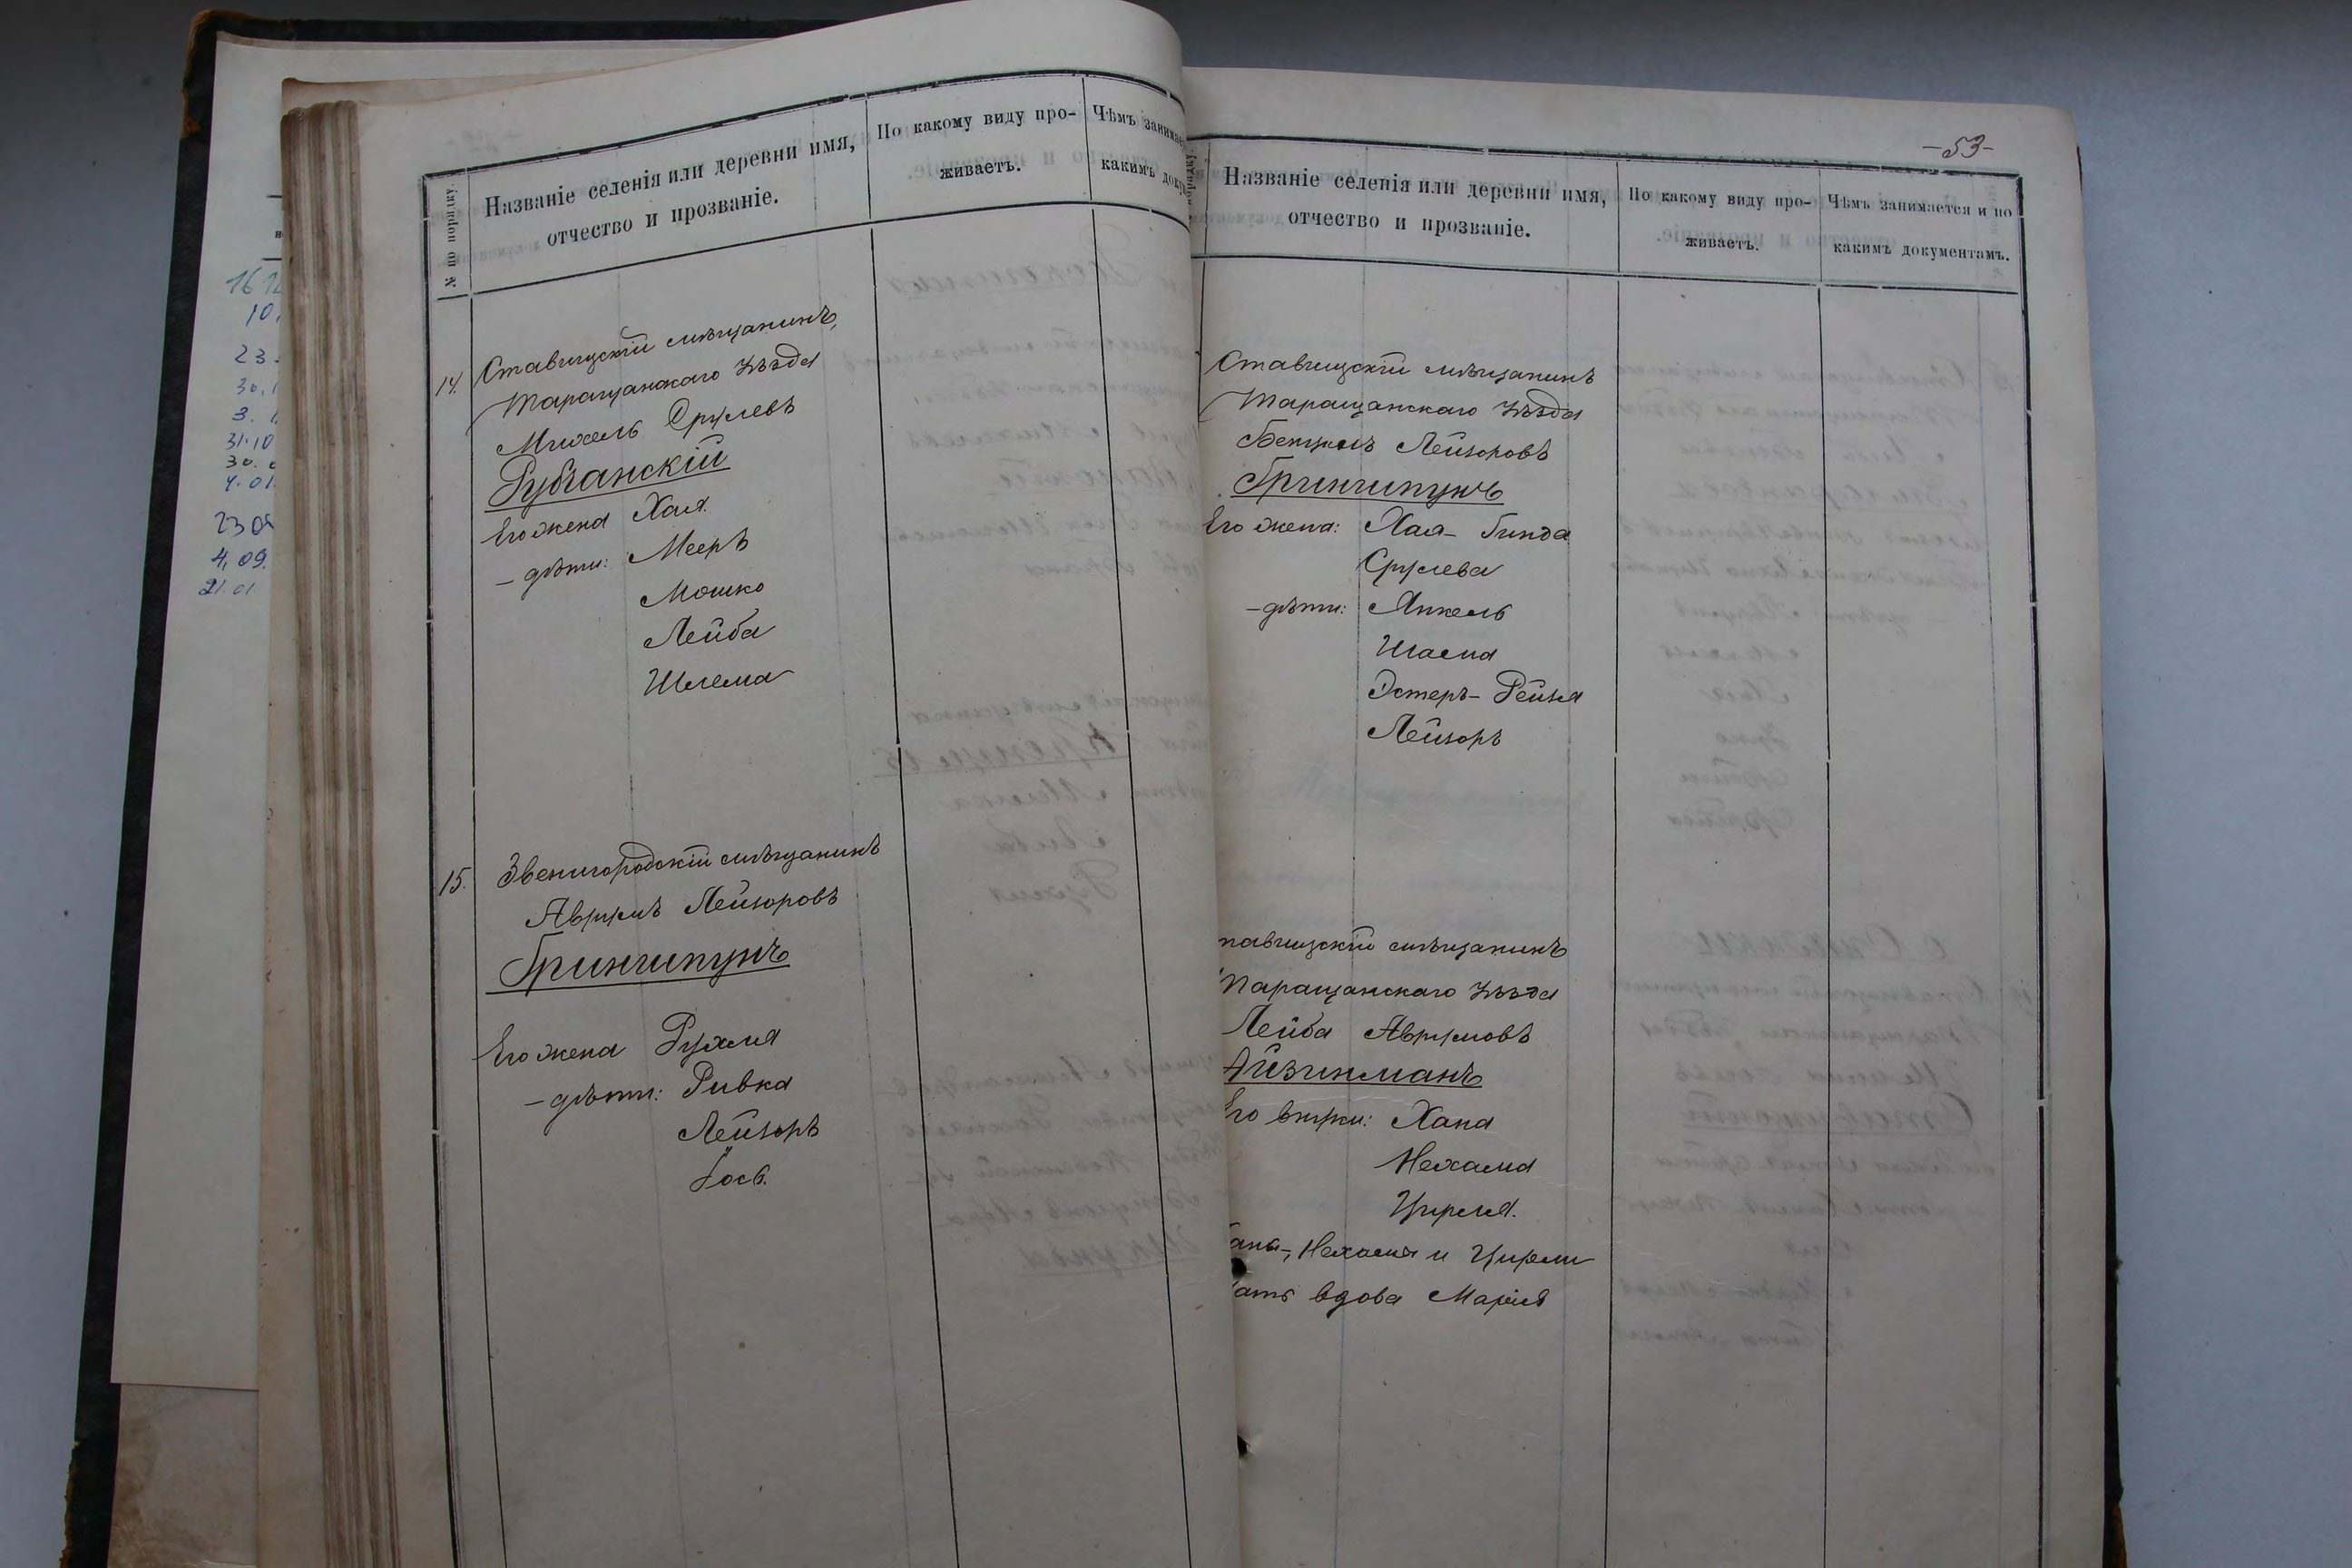 16 12
10.
23.
30.1
3. 1.
31.10
30. 0
4.01.
23 09
4.09.
21.01
№ по порядку.
Названіе селенія или деревни имя,
отчество и прозваніе.
По какому виду про-
живаетъ.
Чѣмъ занимае
какимъ доку
14. Ставищскій мѣщанинъ,
Таращанскаго уѣзда
Михель Срулевъ
Рубчанскій
Его жена Хая.
– дѣти: Мееръ
Мошко
Лейба
Шлема
15. Звенигородскій мѣщанинъ
Аврумъ Лейзоровъ
Грингипунъ
Его жена Рухля
– дѣти: Ривка
Лейзоръ
Іось.
– 53 –
Названіе селенія или деревни имя,
отчество и прозваніе.
По какому виду про-
живаетъ.
Чѣмъ занимается и по
какимъ документамъ.
Ставищскій мѣщанинъ
Таращанскаго уѣзда
Бенціонъ Лейзоровъ
Грингипунъ
Его жена: Хая – Гинда
Срулева
– дѣти: Янкель
Шлема
Эстеръ – Рейзя
Лейзоръ
тавищскій мѣщанинъ
Таращанскаго уѣзда
Лейба Аврумовъ
Айзинманъ
Его внуки: Хана
Нехама
Цирля.
ана –, Нехама и Цирли
ать вдова Марія